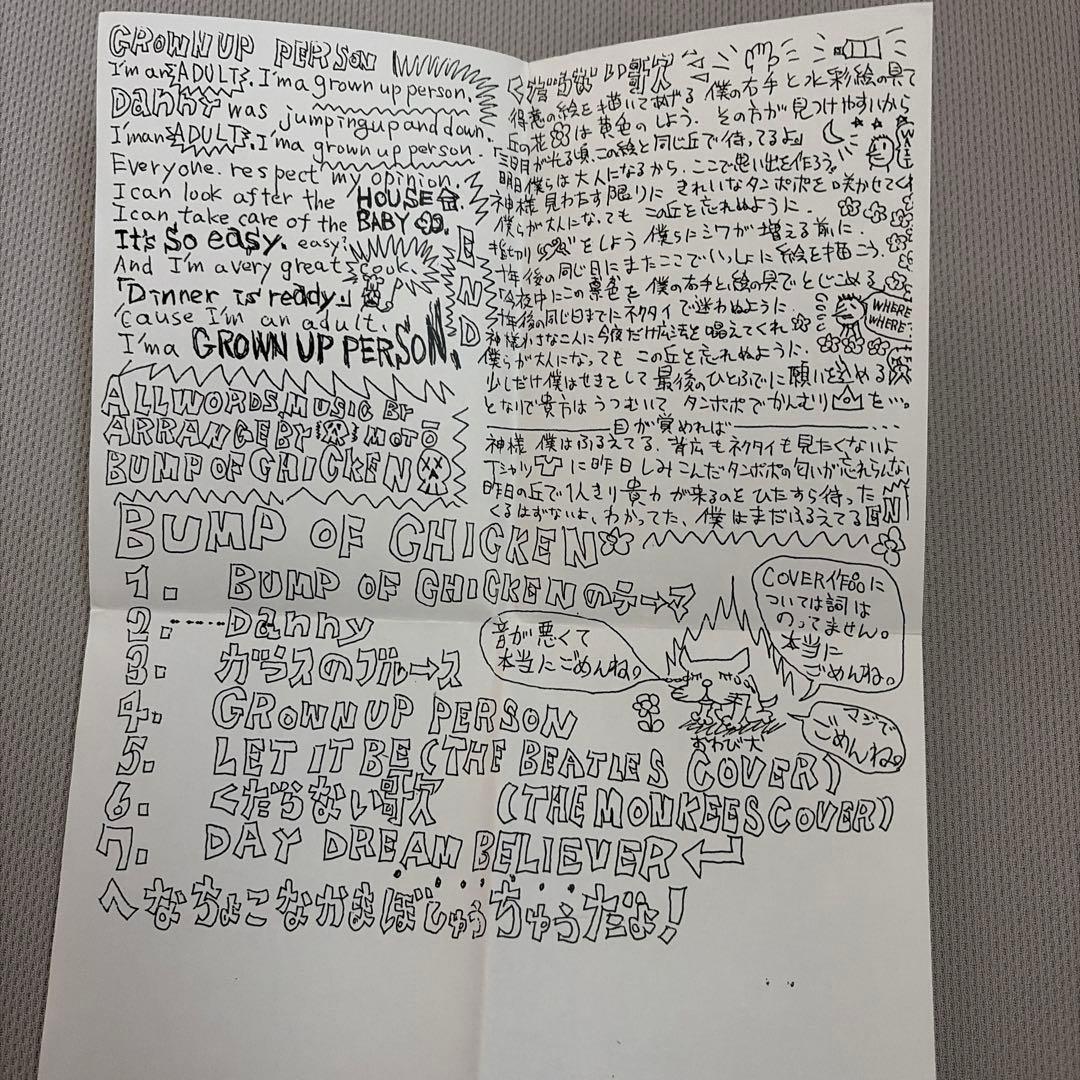 GROWN UP PERSON
I'm an ADULT. I'm a grown up person.
Danny was jumping up and down.
I'm an ADULT. I'm a grown up person.
Everyone. respect my opinion.
I can look after the HOUSE.
I can take care of the BABY.
It's so easy. easy?
And I'm a very great cook.
「Dinner is ready」
'cause I'm an adult.
I'm a GROWN UP PERSON.
END
ALL WORDS, MUSIC BY
ARRANGE BY MOTO
BUMP OF CHICKEN
くだらない唄
得意の絵を描いてあげる 僕の右手と水彩絵の具で
丘の花は黄色のしよう。その方が見つけやすいから
「三日月が光る頃、この絵と同じ丘で待ってるよ」
明日僕らは大人になるから、ここで思い出を作ろう。
WAIT
神様 見わたす限りに きれいなタンポポを咲かせてくれ
僕らが大人になっても この丘を忘れぬように。
をしよう 僕らにシワが増える前に。
十年後の同じ日にまたここで いっしょに絵を描こう。
「今夜中にこの景色を 僕の右手と絵の具でとじこめる
十年後の同じ日までにネクタイで迷わぬように。
WHERE
WHERE?
神様 小さな二人に今夜だけ魔法を唱えてくれ
僕らが大人になっても この丘を忘れぬように。
少しだけ僕はせきをして 最後のひとふでに願いを込める
となりで貴方はうつむいて、タンポポでかんむりを…。
目が覚めれば
神様 僕はふるえてる、背広もネクタイも見たくないよ
Tシャツに昨日しみこんだタンポポの匂いが忘れらんない
昨日の丘で1人きり 貴方が来るのを ひたすら待った
くるはずないよ、わかってた、僕はまだふるえてる
END
BUMP OF CHICKEN
1. BUMP OF CHICKENのテーマ
2. Danny
3. ガラスのブルース
4. GROWN UP PERSON
5. LET IT BE (THE BEATLES COVER)
6. くだらない唄 (THE MONKEES COVER)
7. DAY DREAM BELIEVER
へなちょこなかまぼしゅうちゅうだよ!
音が悪くて
本当にごめんね。
COVER作品に
ついては詞は
のってません。
本当に
ごめんね。
マジで
ごめんね。
おわび犬